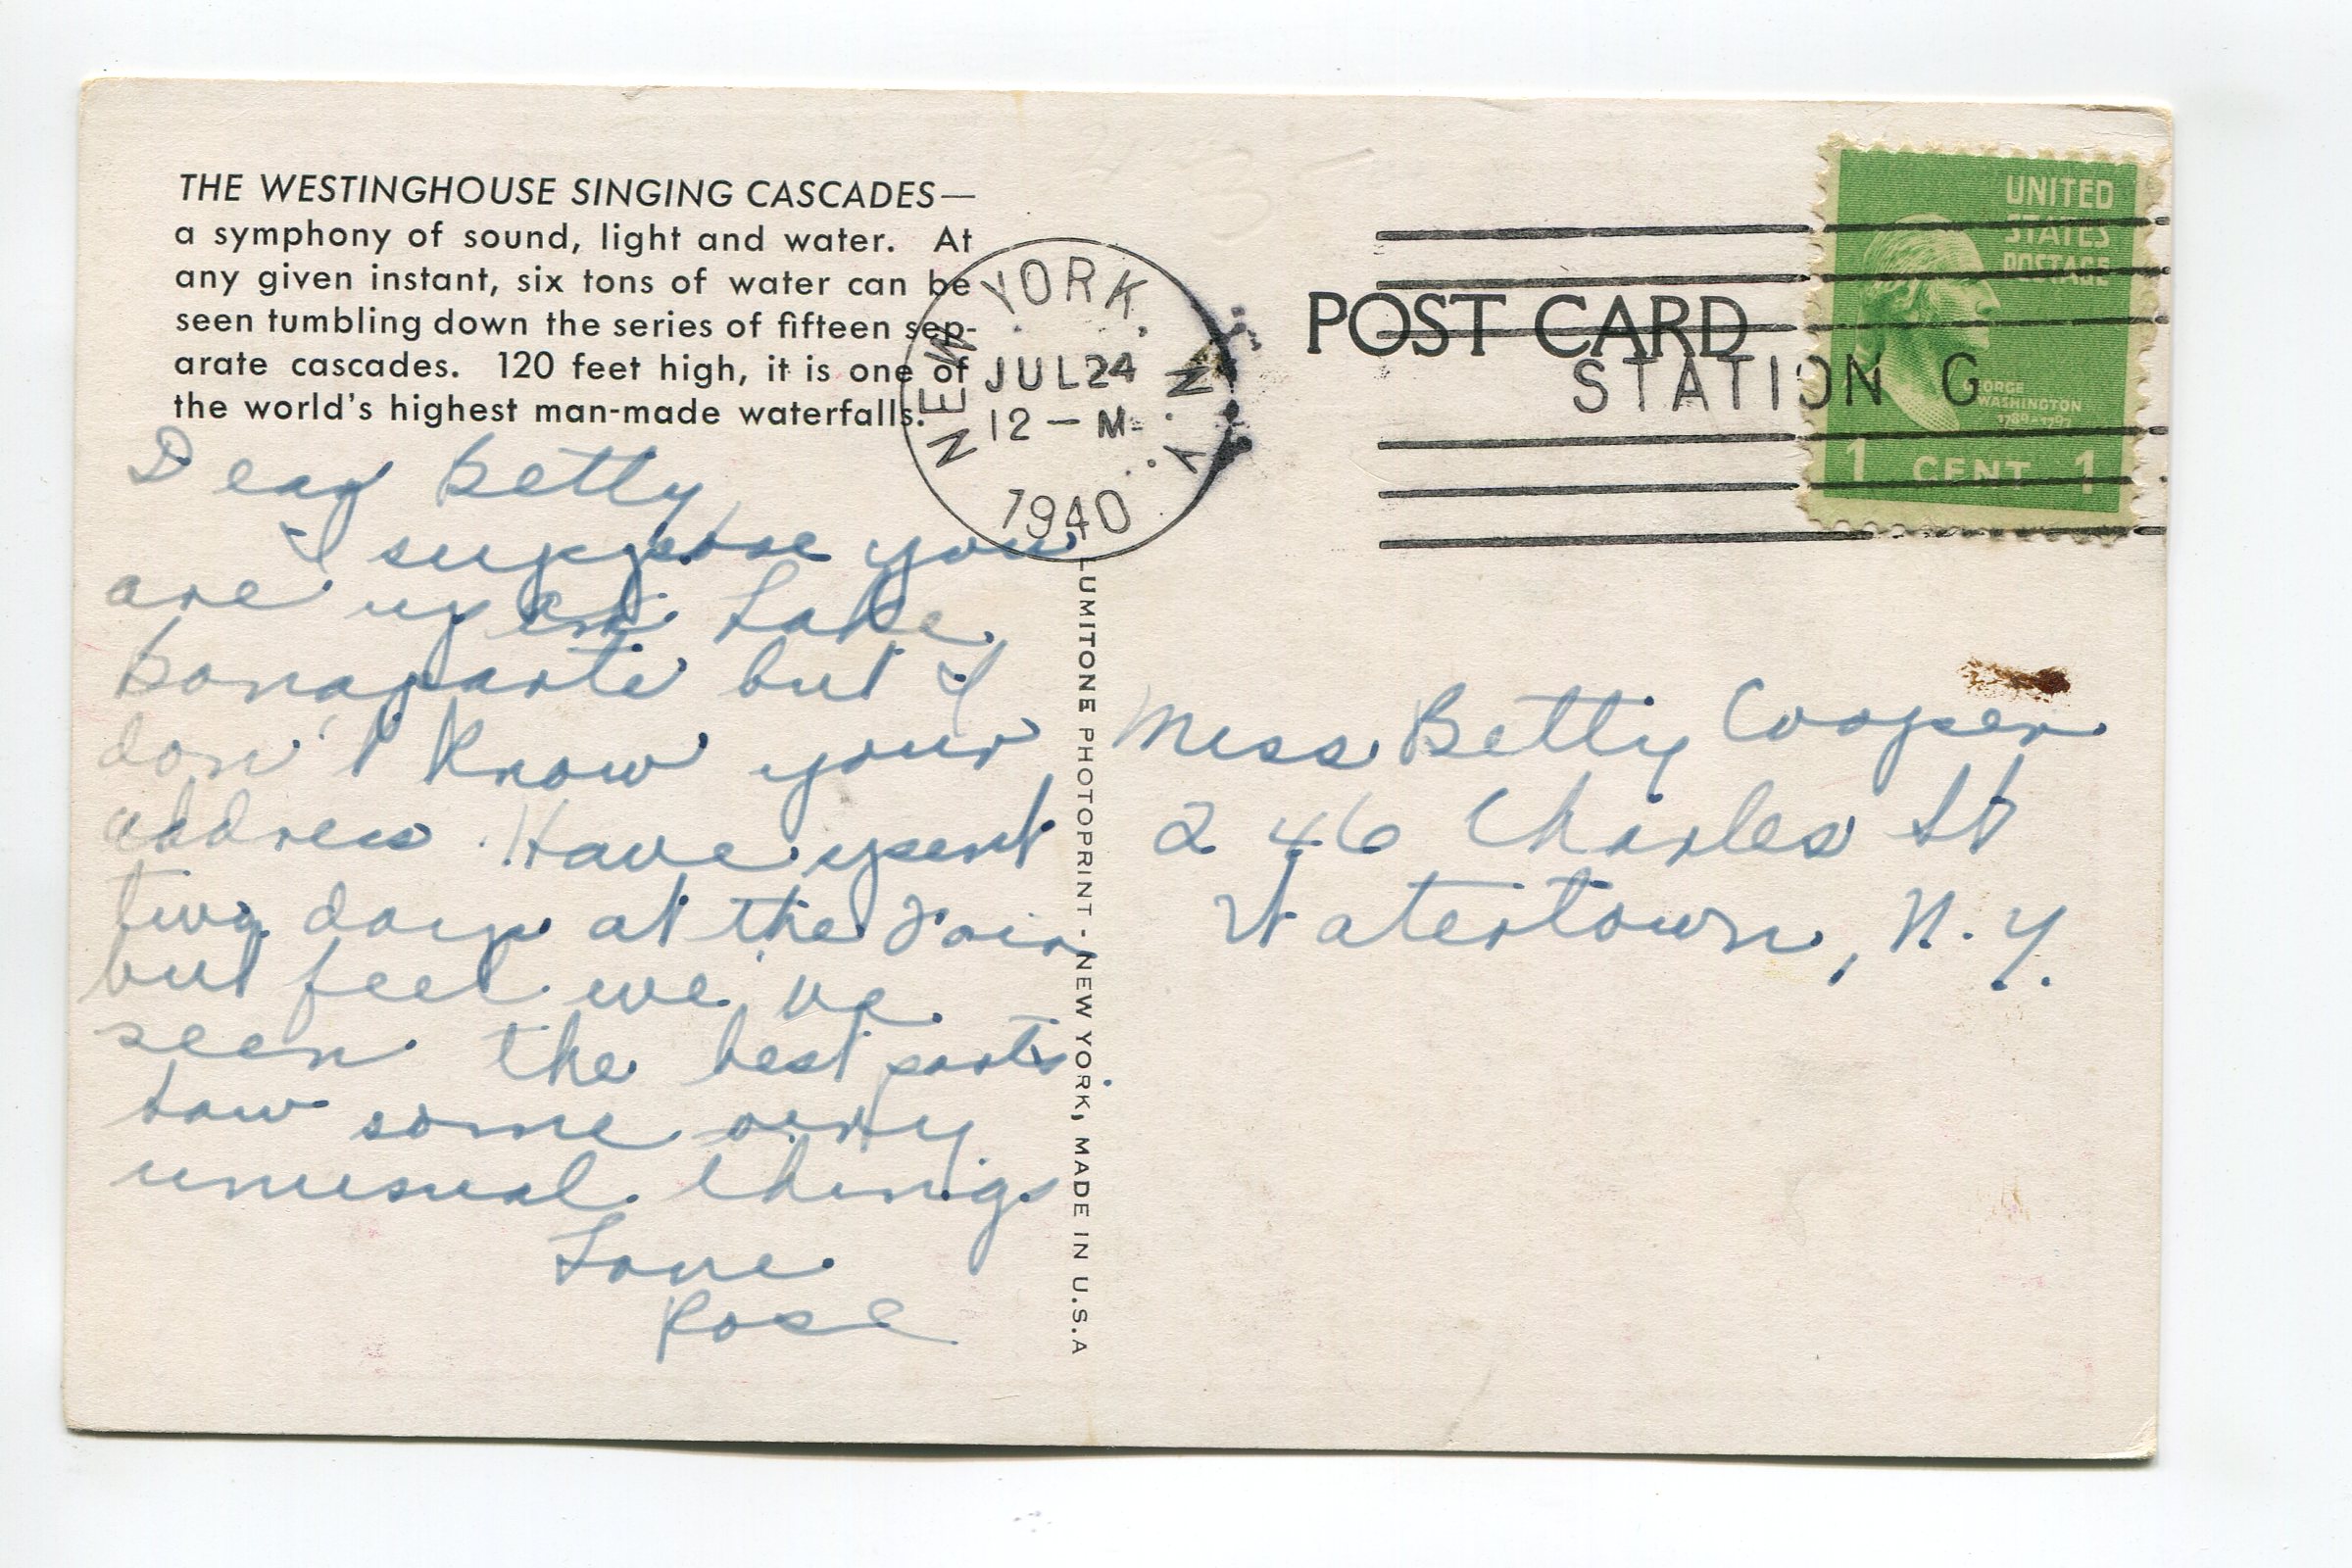 THE WESTINGHOUSE SINGING CASCADES—
a symphony of sound, light and water. At
any given instant, six tons of water can be
seen tumbling down the series of fifteen sep-
arate cascades. 120 feet high, it is one of
the world's highest man-made waterfalls.
Dear Betty
I suppose you
are up at Lake
Bonaparte but I
don't know your
address. Have spent
two days at the Fair
but feel we've
seen the best parts.
Saw some very
unusual things
Love
Rose
LUMITONE PHOTOPRINT - NEW YORK, MADE IN U.S.A
NEW YORK, N.Y.
JUL 24
12 - M
1940
POST CARD
STATION G
UNITED
STATES
POSTAGE
GEORGE
WASHINGTON
1789-1797
1 CENT 1
Miss Betty Cooper
246 Charles St
Watertown, N.Y.